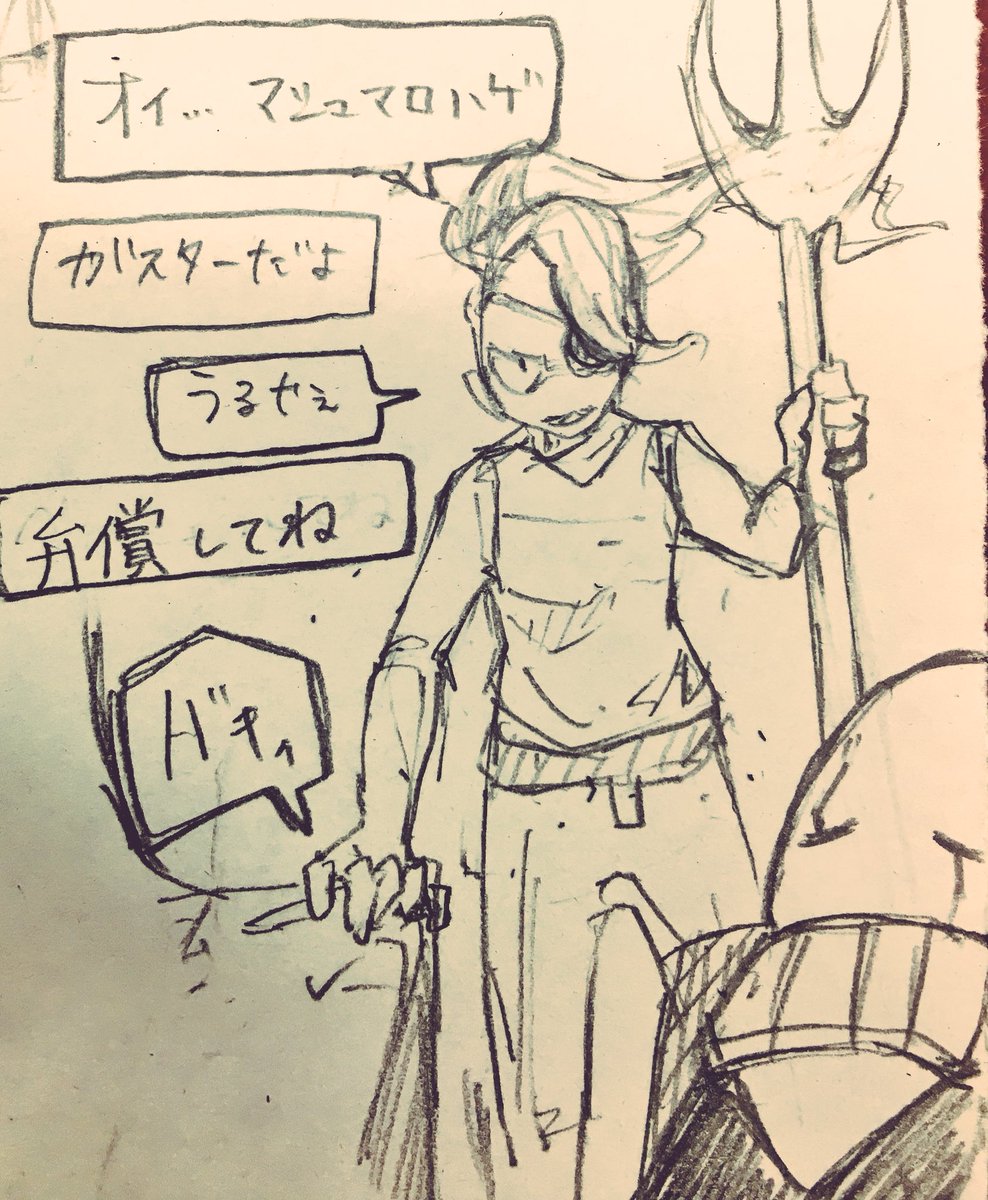 オイ… マシュマロハゲ
ガスターだよ
うるせぇ
弁償してね
バキィ